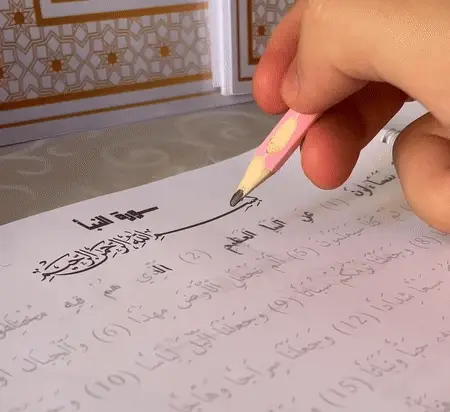 سورة النبأ
بسم الله الرحمن الرحيم
يَتَسَاءَلُونَ (1) عَنِ النَّبَإِ الْعَظِيمِ (2) الَّذِي هُمْ فِيهِ مُخْتَلِفُونَ
كَلَّا سَيَعْلَمُونَ (5) أَلَمْ نَجْعَلِ الْأَرْضَ مِهَادًا (6) وَالْجِبَالَ
(8) وَجَعَلْنَا نَوْمَكُمْ سُبَاتًا (9) وَجَعَلْنَا اللَّيْلَ لِبَاسًا (10)
سَبْعًا شِدَادًا (12) وَجَعَلْنَا سِرَاجًا وَهَّاجًا
بِهِ حَبًّا وَنَبَاتًا (15)